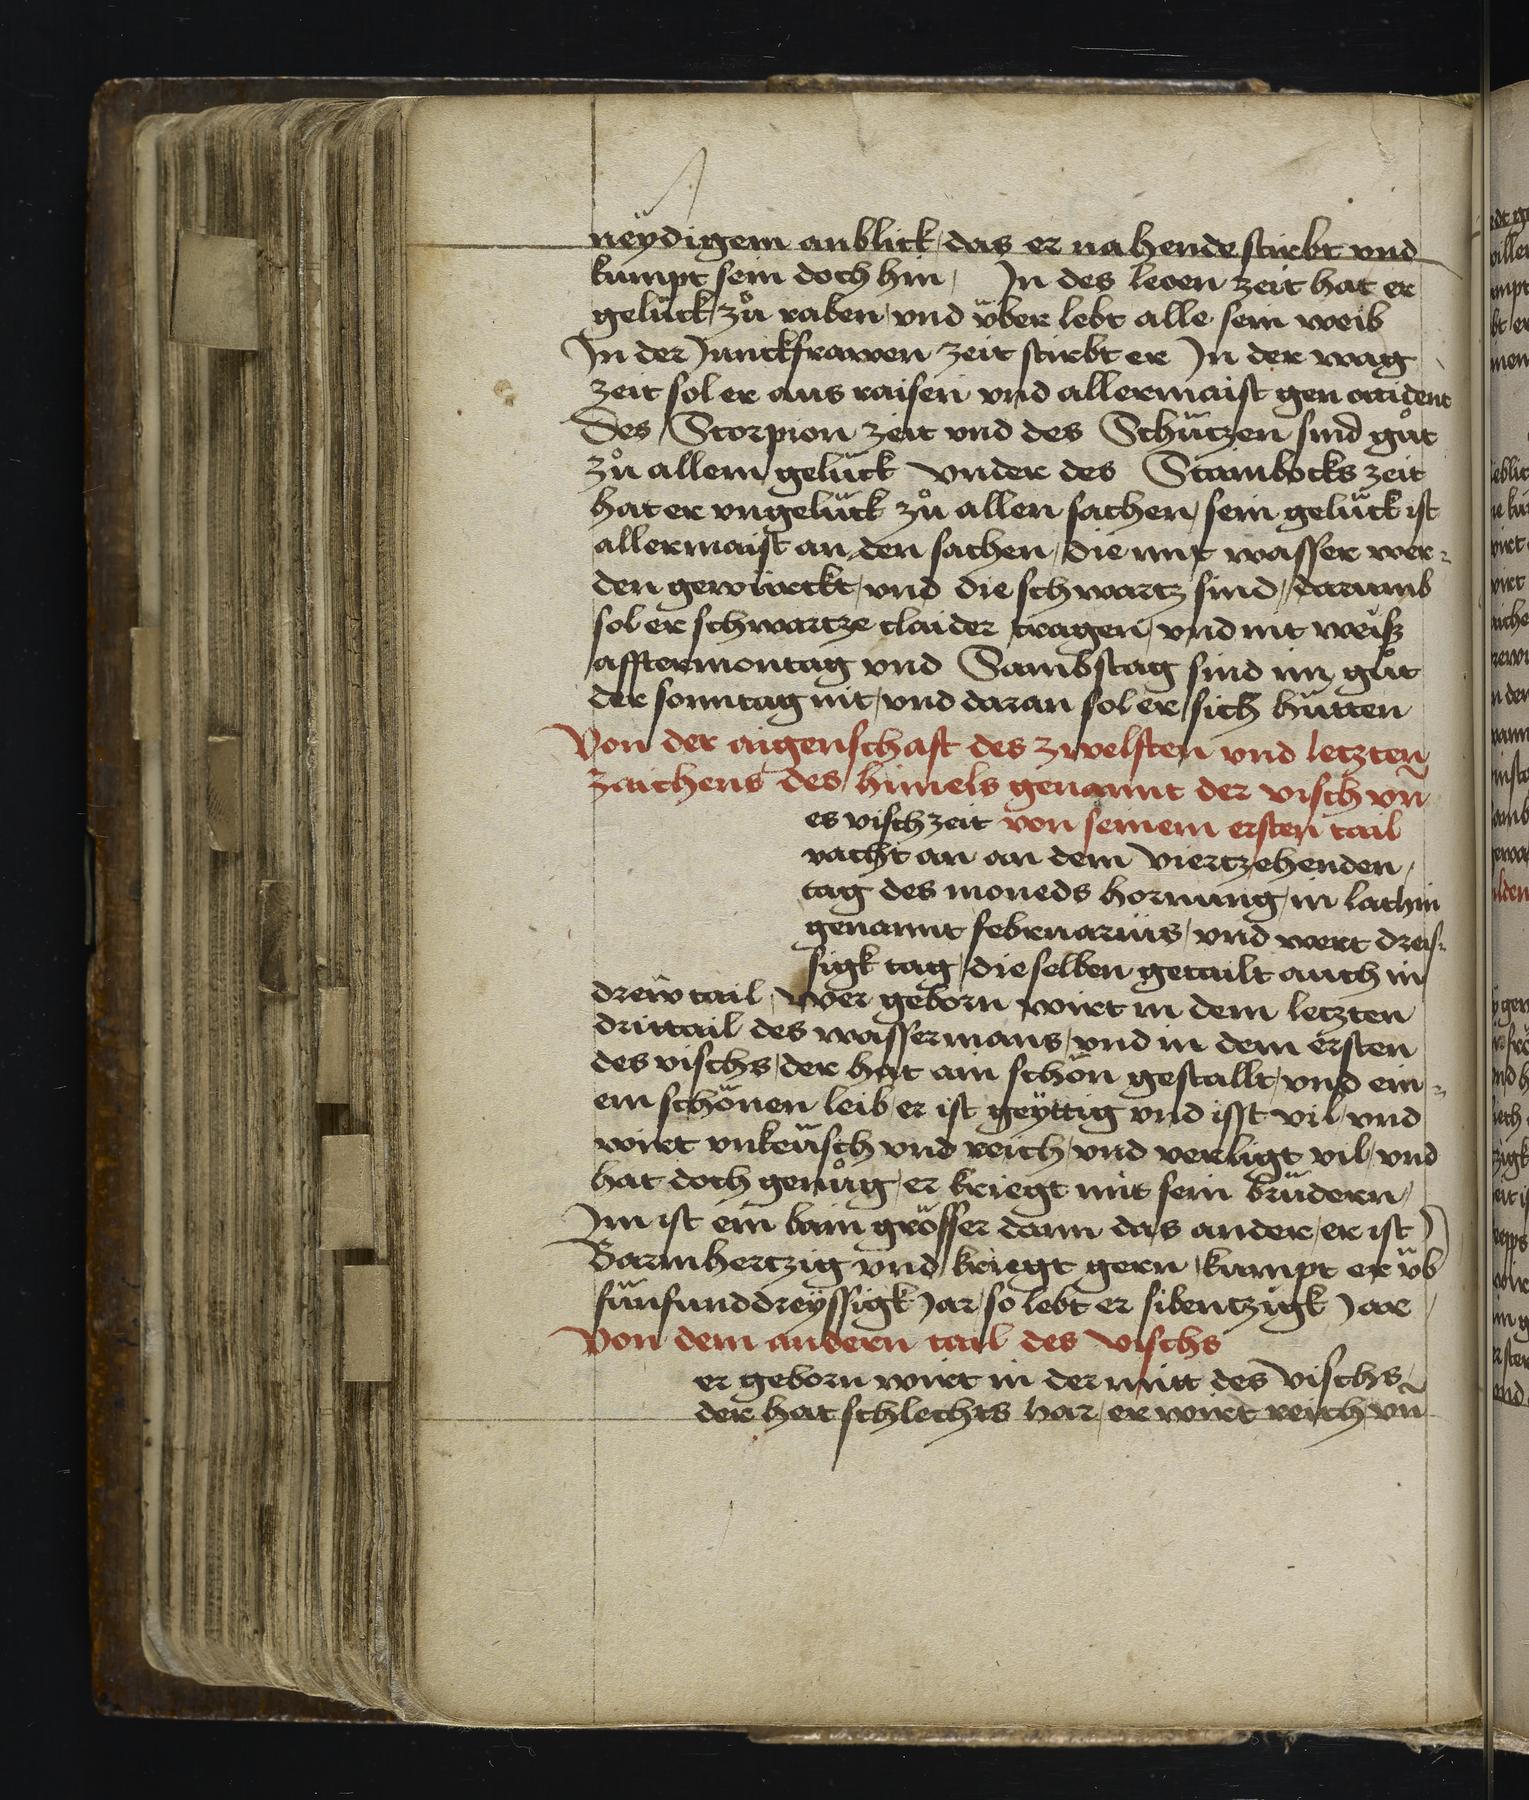 neẏdigem anblick / das er nahende stirbt vnd
kumpt sein doch hin / Jn des leoen zeit hat er
gelück / zů raben / vnd über lebt alle sein weib
Jn der Junckfrawen zeit stirbt er Jn der wag
zeit sol er aus raisen vnd allermaist gen occident
Des Scorpion zeit vnd des Schützen sind gůt
zů allem gelück vnder des Stainbocks zeit
hat er vngelück zů allen sachen / sein gelück ist
allermaist an den sachen / die mit wasser wer-
den gewürckt / vnd die schwartz sind / darumb
sol er schwartze claider tragen / vnd nit weiß
afftermontag vnd Sambstag sind im gůt
der sonntag nit / vnd daran sol er sich hütten
Von der aigenschaft des zwelften vnd letzten
zaichens des himels genannt der visch vn̄
es visch zeit von seinem ersten tail
vacht an an dem viertzehenden /
tag des moneds hornung / in lathin
genannt februarius / vnd wert dreis-
sigk tag / die selben getailt auch in
drew tail / wer geborn wirt in dem letzten
drittail des wassermans / vnd in dem ersten
des vischs / der hat ain schön gestallt / vnd ein-
en schönen leib / er ist geÿttig vnd isst vil / vnd
wirt vnkeüsch vnd reich / vnd verligt vil / vnd
hat doch genůg / er kriegt mit sein brüdern /
Jm ist ein bain grösser dann das ander / er ist
Barmhertzig vnd kriegt gern / kumpt er üb
fünfunddreÿssigk Jar / so lebt er sibentzigk Jare
Von dem andern tail des vischs
er geborn wirt in der mitt des vischs
der hat schlechts har / er wirt reich vn̄